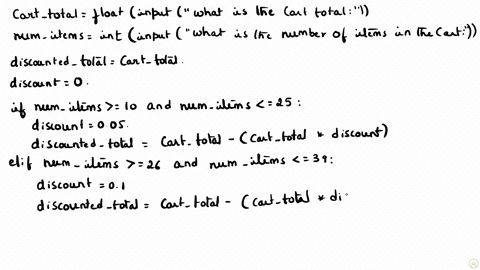 Cart_total = float (input ("what is the Cart total:"))
num_items = int (input ("what is the number of items in the Cart:"))
discounted_total = Cart_total.
discount = 0.
if num_items >= 10 and num_items <= 25 :
discount = 0.05.
discounted_total = Cart_total - (Cart_total * discount)
elif num_items >= 26 and num_items <= 39 :
discount = 0.1
discounted_total = Cart_total - (Cart_total * di